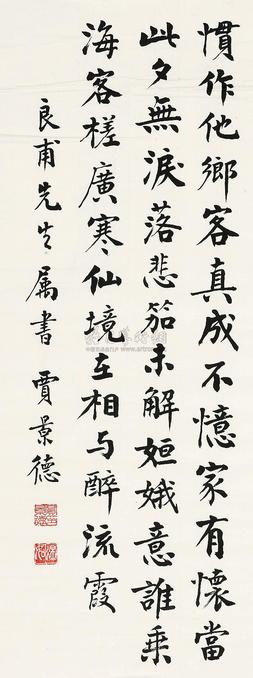 慣作他鄉客真成不憶家有懷當
此夕無淚落悲笳未解姮娥意誰乘
海客槎廣寒仙境在相与醉流霞
良甫先生属書 賈景德